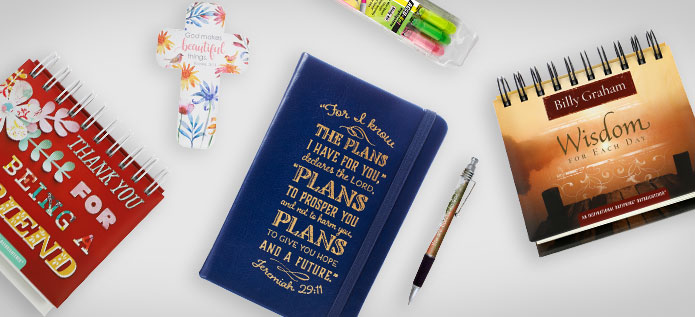 THANK YOU
FOR
BEING A
FRIEND
God makes
beautiful
things.
"For I know
THE PLANS
I HAVE FOR YOU,"
declares the LORD,
"PLANS
TO PROSPER YOU
and not to harm you,
PLANS
TO GIVE YOU HOPE
AND A FUTURE."
Jeremiah 29:11
Billy Graham
Wisdom
FOR EACH DAY
AN INSPIRATIONAL DAYSPRING DAYBRIGHTENER